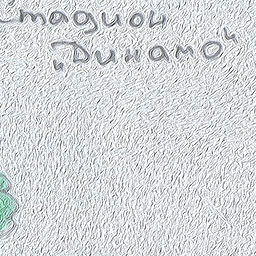 Стадион
"Динамо"